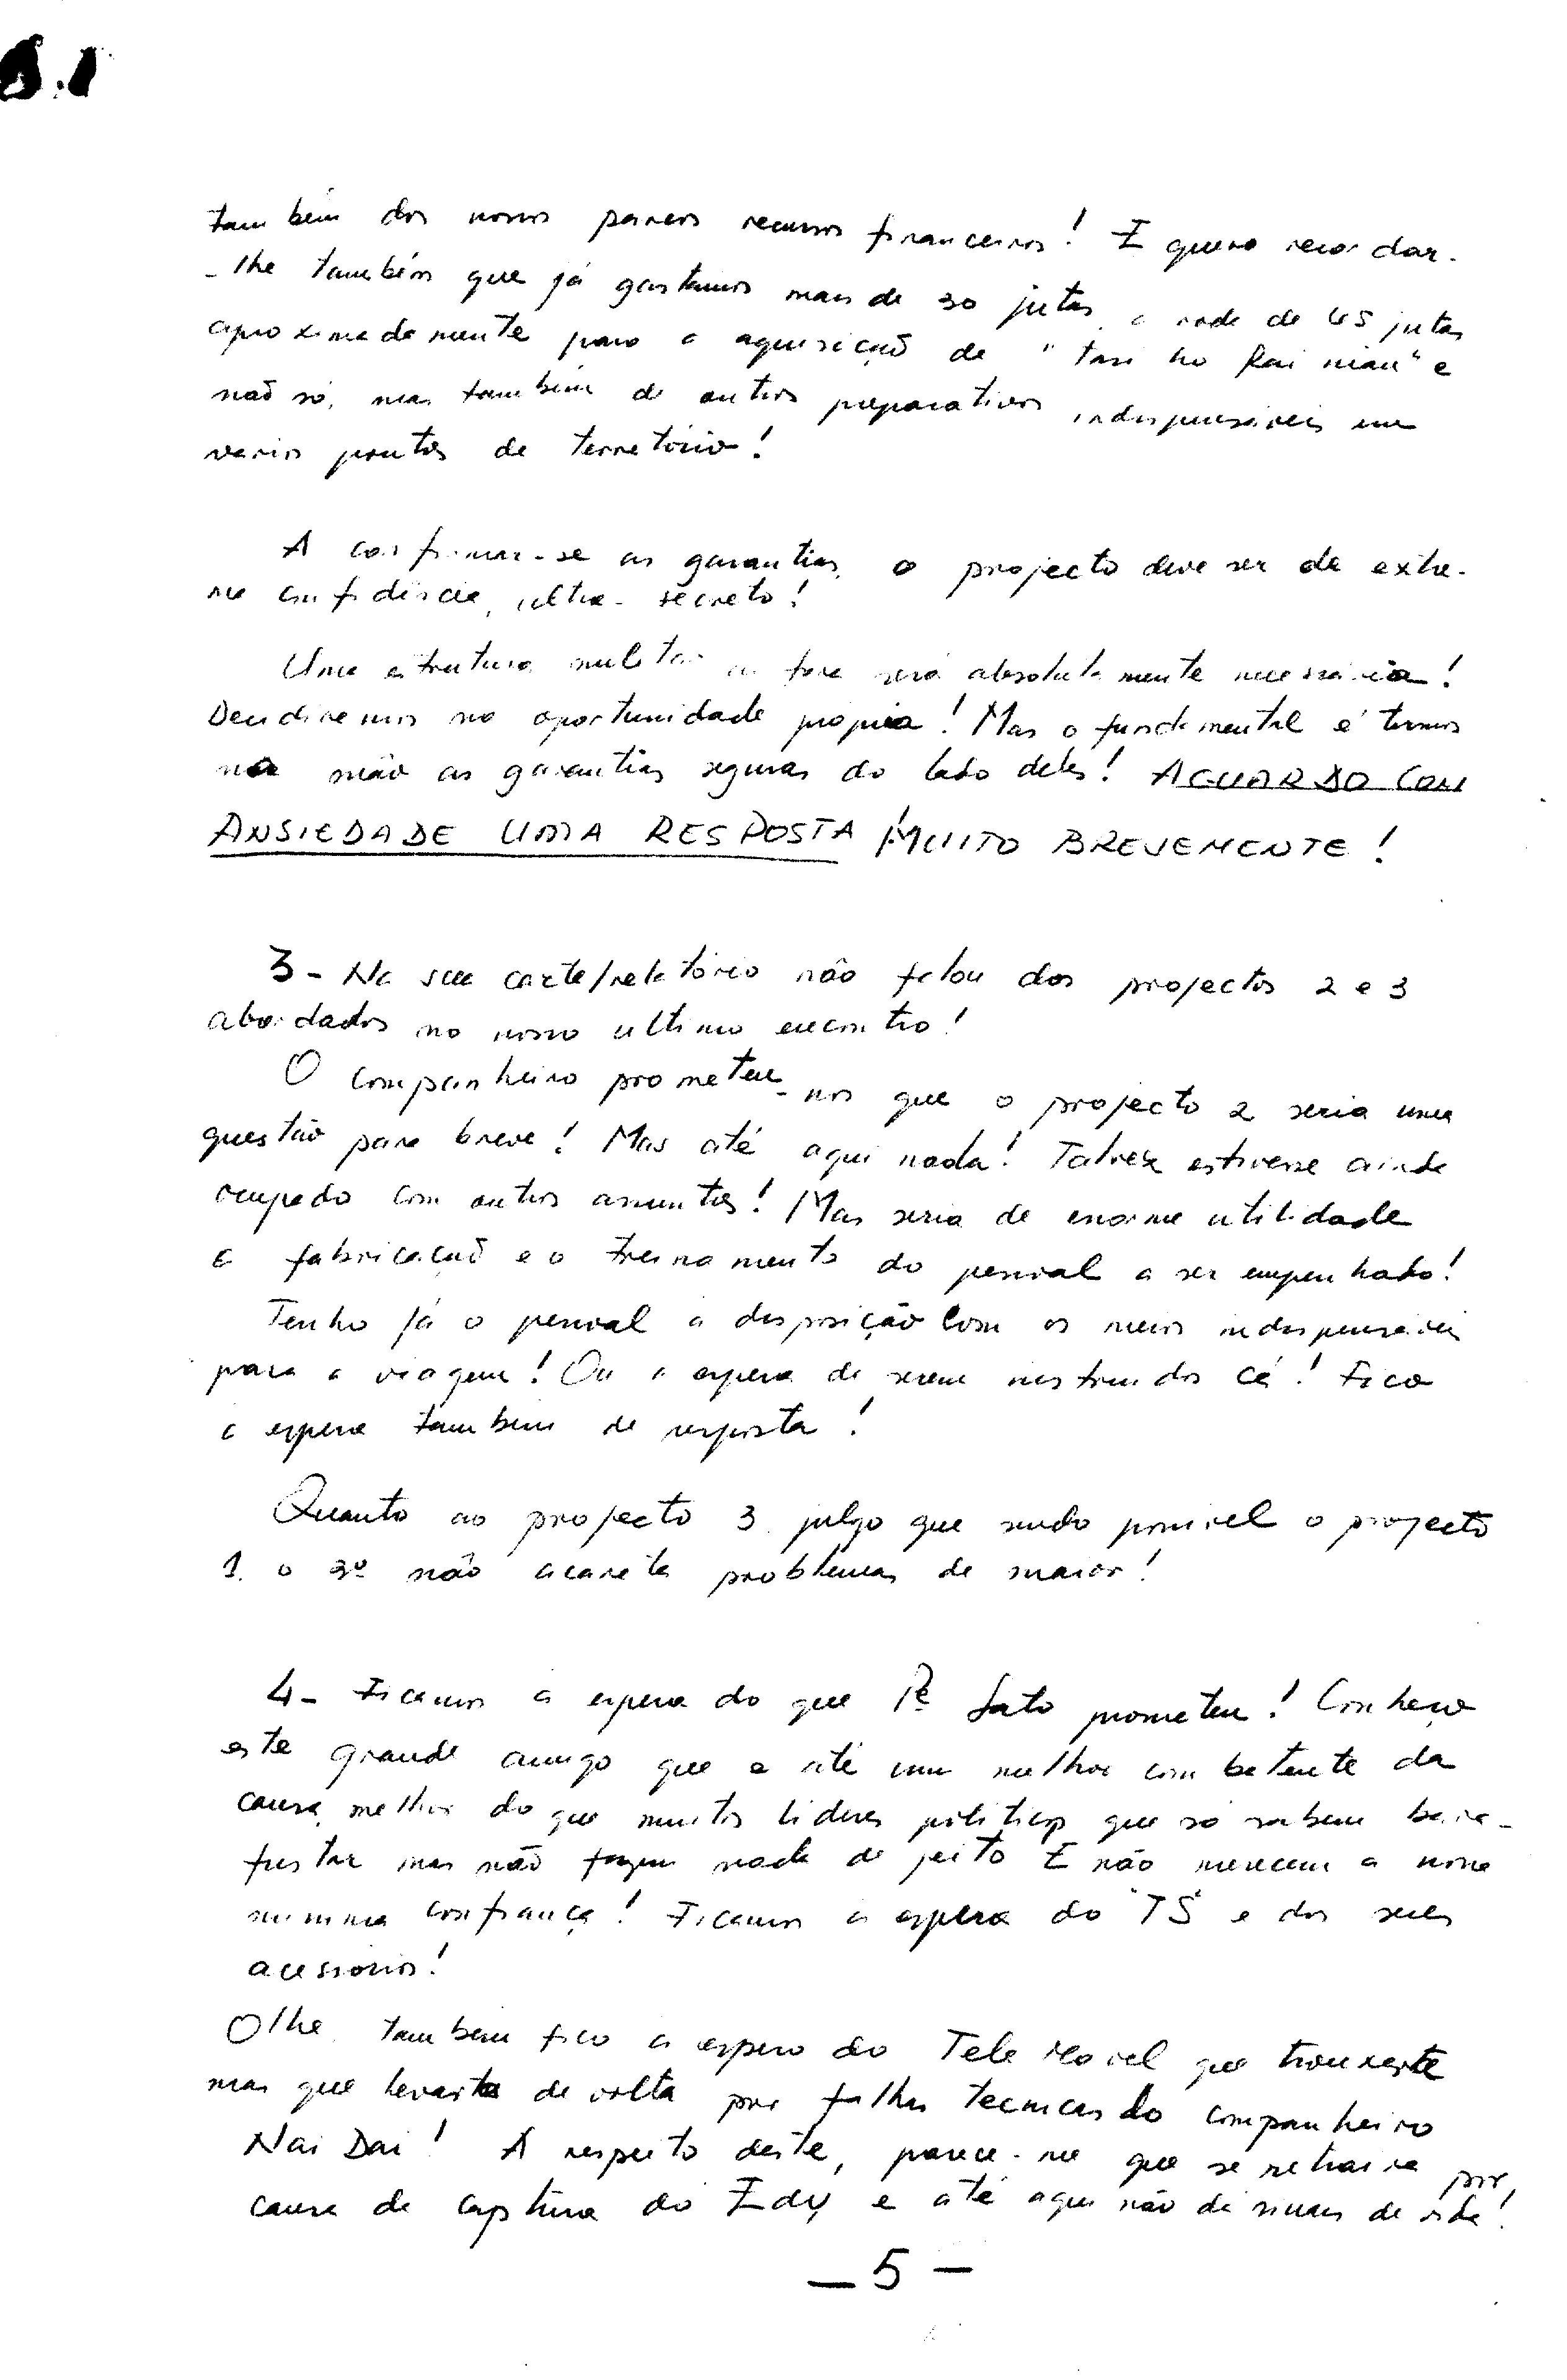 S.1
também dos nossos parcos recursos financeiros! E quero recordar-
-lhe também que já gastamos mais de 30 jutas, a roda de 45 jutas
aproximadamente para a aquisiçaõ de "tasi ho Rai nian" e
naõ só, mas também de outros preparativos indispensáveis em
varios pontos de território!
A confirmar-se as garantias, o projecto deve ser de extre-
ma confidência, ultra-secreto!
Uma estrutura militar será absolutamente necessária!
Decidiremos na oportunidade propria! Mas o fundamental é termos
na mão as garantias seguras do lado deles! AGUARDO COM
ANSIEDADE UMA RESPOSTA MUITO BREVEMENTE!
3- Na sua carta/relatório não falou dos projectos 2 e 3
abordados no nosso ultimo encontro!
O companheiro prometeu-nos que o projecto 2 seria uma
questão para breve! Mas até aqui nada! Talvez estivesse ainda
ocupado com outros assuntos! Mas seria de enorme utilidade
a fabricaçaõ e o treinamento do pessoal a ser empenhado!
Tenho já o pessoal a disposição com os meios indispensáveis
para a viagem! Ou a espera de serem instruidos cá! Fico
a espera tambem de resposta!
Quanto ao projecto 3, julgo que sendo possivel o projecto
1, o 3º não acareta problemas de maior!
4- Ficamos a espera do que Pe Sato prometeu! Conheço
este grande amigo que e até um melhor combatente da
causa, melhor do que muitos lideres politicos que só sabem bara-
fustar mas não fazem nada de jeito E não merecem a nossa
minima confiança! Ficamos a espera do "TS" e dos seus
acessorios!
Olhe, tambem fico a espera do Tele movel que trouxeste
mas que levaste de volta por falhas tecnicas do companheiro
Nai Dai! A respeito deste, parece-me que se retraira por
causa de captura do Edy e até aqui não dá sinais de vida!
- 5 -